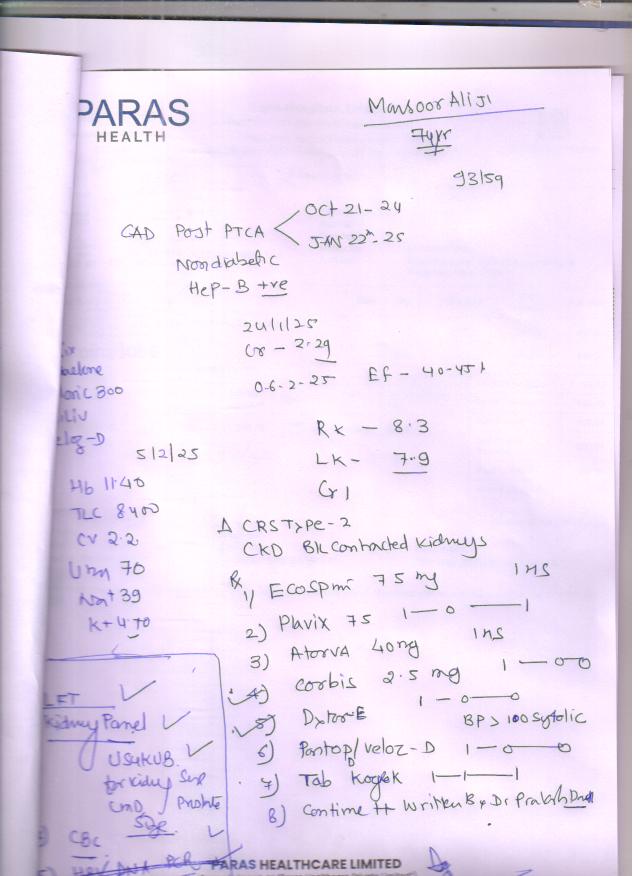 PARAS
HEALTH
Mansoor Ali Ji
74yr
93/59
CAD Post PTCA
Oct 21-24
JAN 22ⁿ-25
Nondiabetic
Hep-B +ve
24/1/25
Cr - 2.29
06-2-25 Ef - 40-45%
RK - 8.3
LK - 7.9
Gr I
300
5/2/25
Hb 11.40
TLC 8400
Cr 2.2
70
Na+ 39
K+ 4.70
Δ CRS Type-2
CKD B/L Contracted Kidneys
Rx
1) Ecosprin 75 mg 1 HS
2) Plavix 75 1-0-1
3) Atorva 40mg 1 HS
4) Corbis 2.5 mg 1-0-0
5) Dytor-E 1-0-0
BP > 100 Sytolic
6) Pantop D/Veloz-D 1-0-0
7) Tab 1-1-1
8) Continue Written By Dr Prakash
LFT
Kidney Panel
USG KUB
for kidney Size
CMD Prostate
Size
CBC
DNA PCR
PARAS HEALTHCARE LIMITED